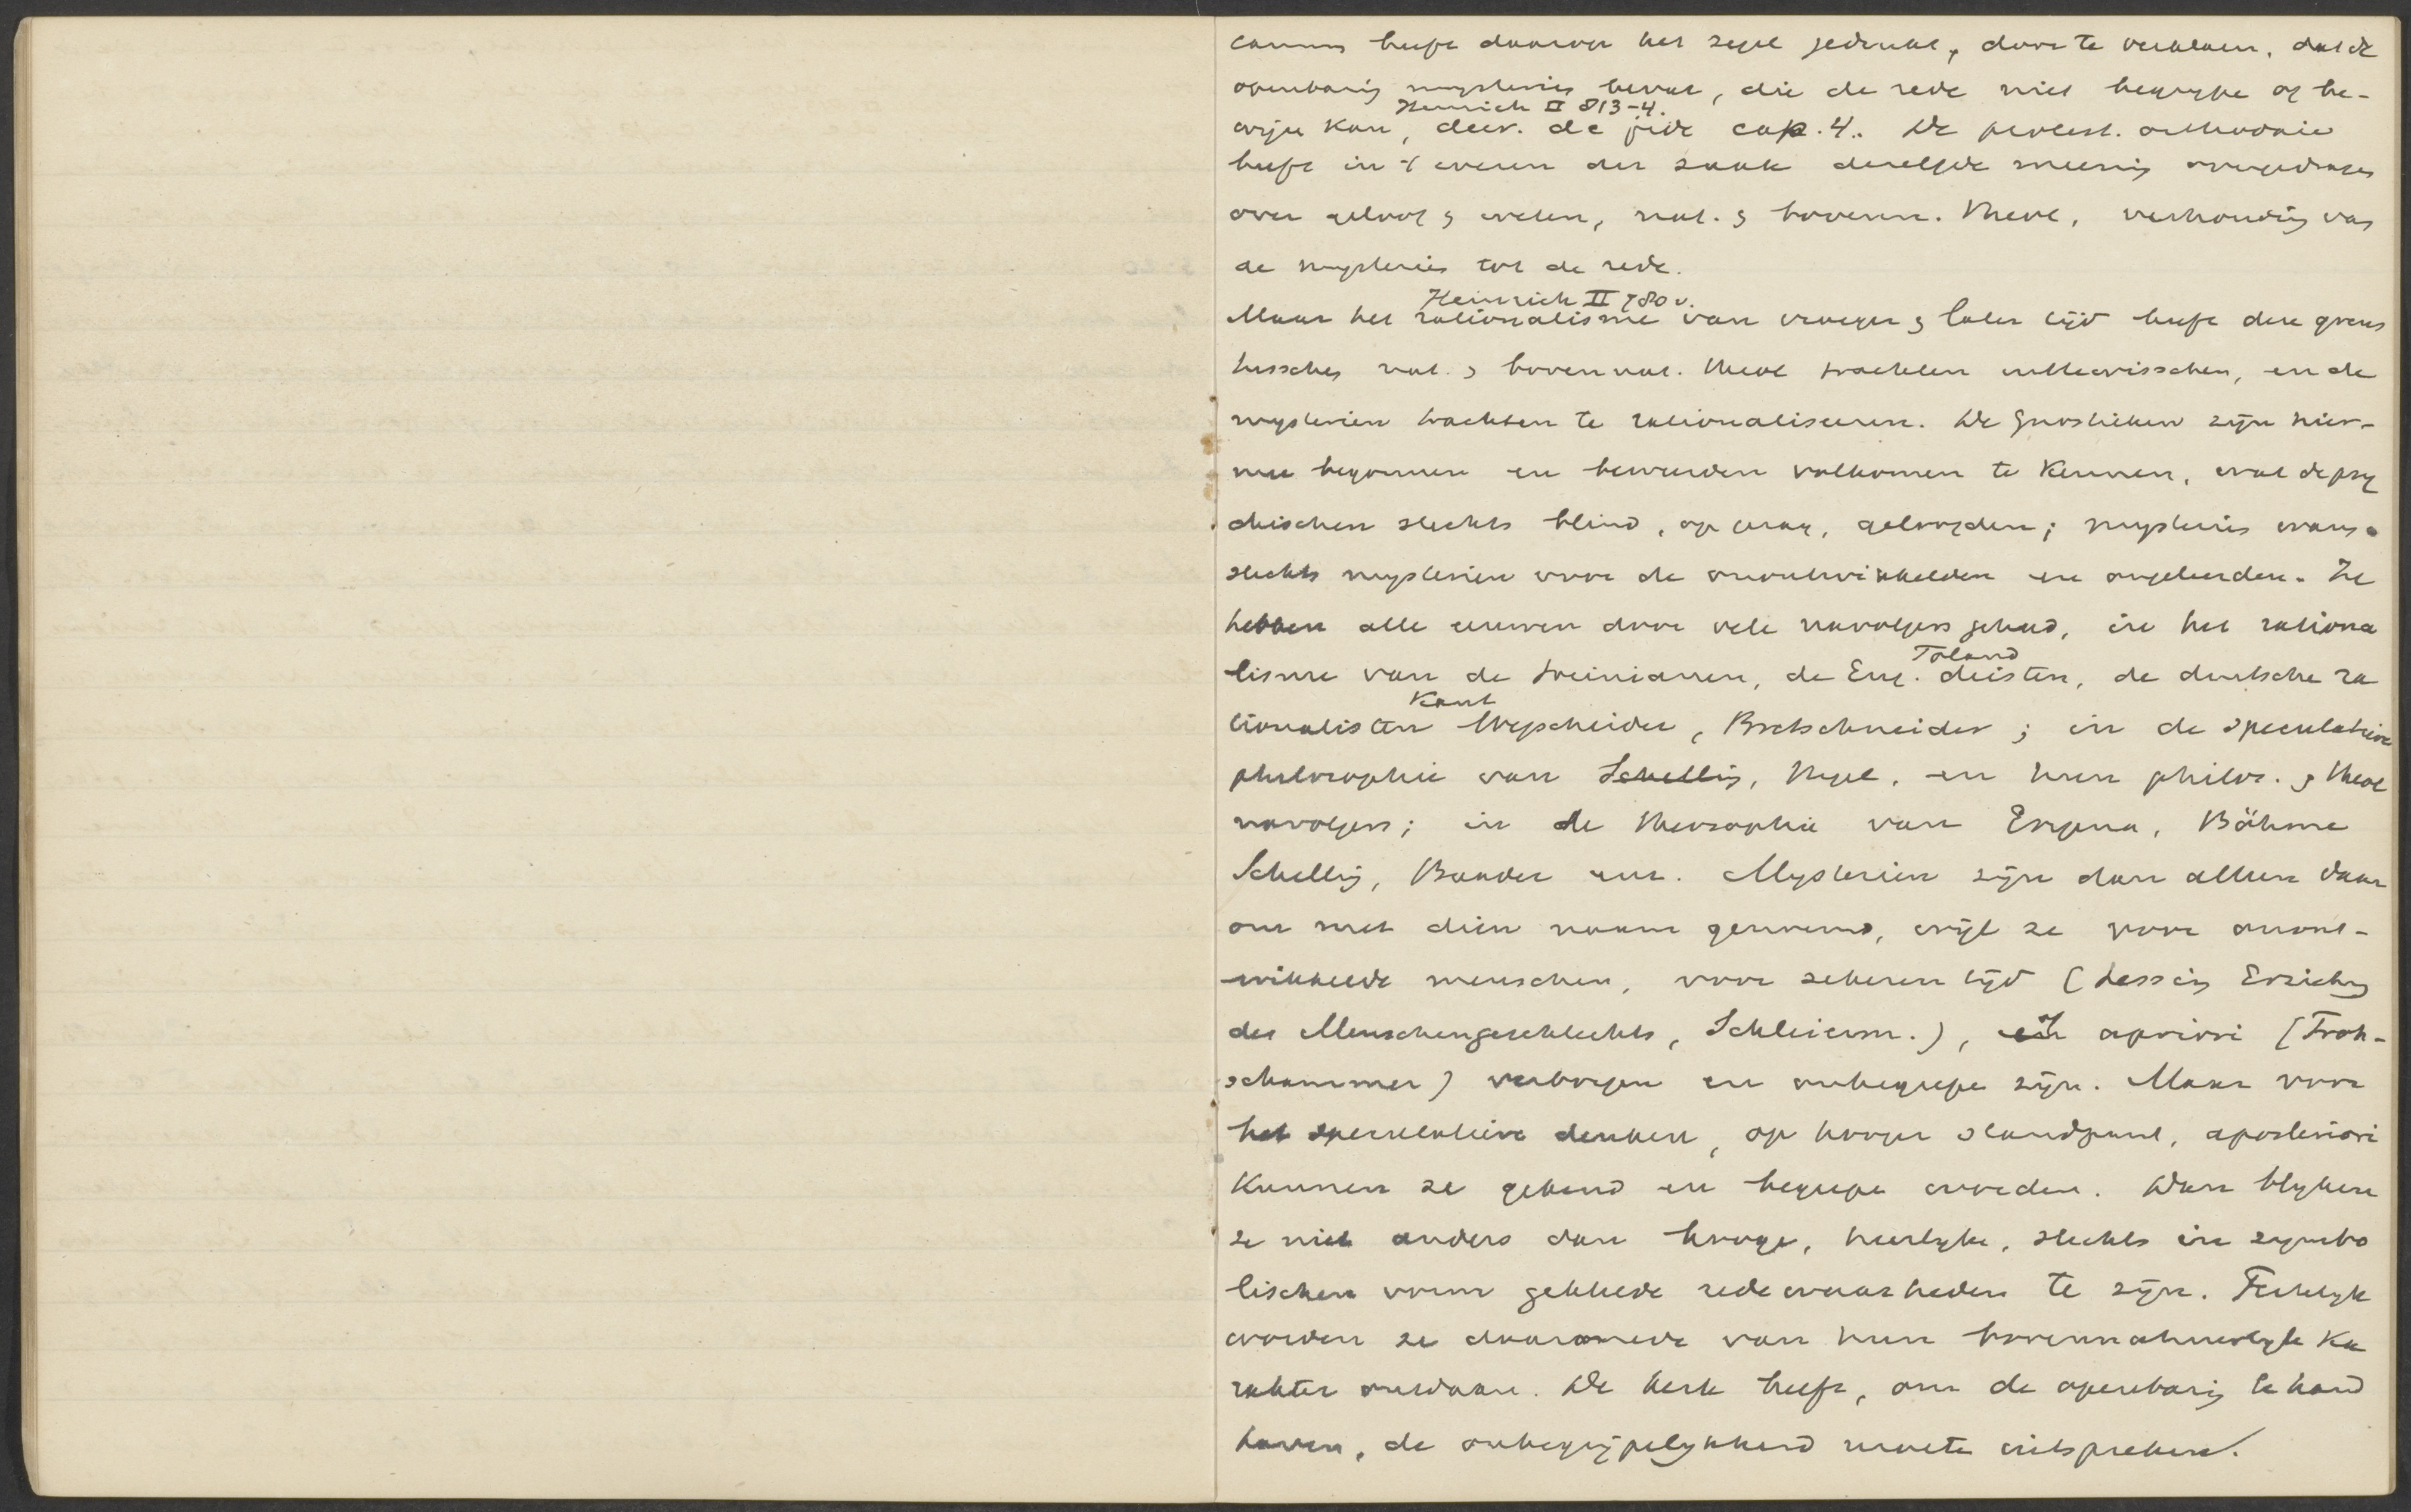 canum heeft daarop het zegel gedrukt, door te verklaren, dat de
openbaring mysteries bevat, die de rede niet begrijpe of be-
Heinrich II 813-4.
wijze kan, decr. de fide cap. 4. De protest. orthodoxie
heeft in 't wezen der zaak dezelfde meening voorgedragen
over geloof & weten, nat. & bovenn. theol, verhouding van
de mysteries tot de rede.
Heinrich II 780 v.
Maar het rationalisme van vroeger & later tijd heeft deze grens
tusschen nat. & bovennat. theol trachten uittewisschen, en de
mysterien trachten te rationaliseeren. De Gnostieken zijn hier-
mee begonnen en beweerden volkomen te kennen, wat de psy
chischen slechts blind, op gezag, geloofden; mysteries waren
slechts mysterien voor de onontwikkelden en ongeleerden. Ze
hebben alle eeuwen door vele navolgers gehad, in het rationa
Toland
lisme van de Socinianen, de Eng. deisten, de duitsche ra
Kant
tionalisten Wegscheider, Bretschneider; in de speculatieve
philosophie van Schelling, Hegel, en hun philos. & theol
navolgers; in de theosophie van Erigena, Böhme
Schelling, Baader enz. Mysterien zijn dan alleen daar
om met dien naam genoemd, wijl ze voor onont-
wikkelde menschen, voor zekeren tijd (Lessing Erziehung
des Menschengeschlechts, Schleierm.), of apriori (Froh-
schammer) verborgen en onbegrepe zijn. Maar voor
het speculatieve denken, op hooger standpunt, aposteriori
kunnen ze gekend en begrepe worden. Dan blijken
ze niet anders dan hooge, heerlijke, slechts in symbo
lischen vorm gekleede redewaarheden te zijn. Feitelijk
worden ze daarmede van hun bovennatuurlijk ka
rakter ontdaan. De kerk heeft, om de openbaring te hand
haven, de onbegrijpelijkheid moeten uitspreken.